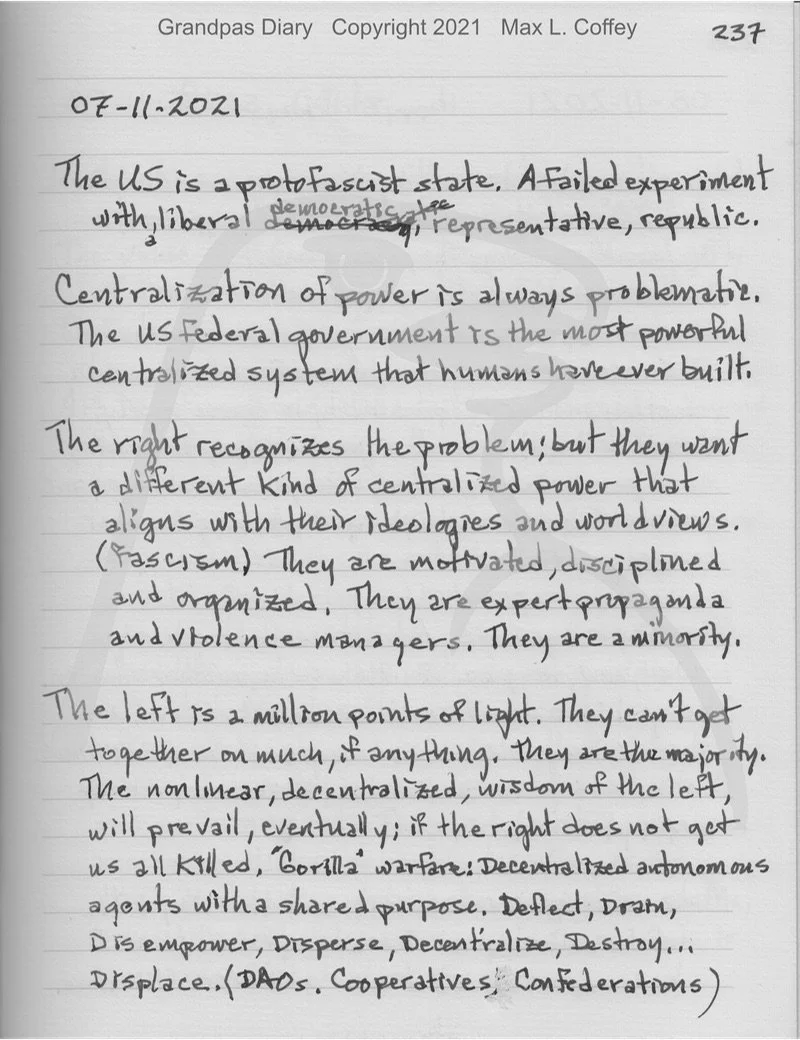 Grandpas Diary Copyright 2021 Max L. Coffey
237
07-11-2021
The US is a protofascist state. A failed experiment
with a liberal democratic democracy, representative, republic.
Centralization of power is always problematic.
The US federal government is the most powerful
centralized system that humans have ever built.
The right recognizes the problem; but they want
a different kind of centralized power that
aligns with their ideologies and worldviews.
(Fascism) They are motivated, disciplined
and organized. They are expert propaganda
and violence managers. They are a minority.
The left is a million points of light. They can't get
together on much, if anything. They are the majority.
The nonlinear, decentralized, wisdom of the left,
will prevail, eventually; if the right does not get
us all killed. "Gorilla" warfare: Decentralized autonomous
agents with a shared purpose. Deflect, Drain,
Disempower, Disperse, Decentralize, Destroy...
Displace. (DAOs. Cooperatives, Confederations)